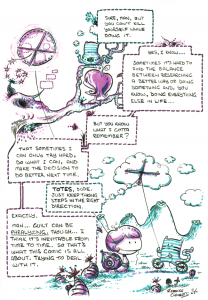 SURE, MAN, BUT
YOU CAN'T KILL
YOURSELF WHILE
DOING IT.
YES, I KNOW...
SOMETIMES IT'S HARD TO
FIND THE BALANCE
BETWEEN RESEARCHING
A BETTER WAY OF DOING
SOMETHING AND, YOU
KNOW, DOING EVERYTHING
ELSE IN LIFE...
BUT YOU KNOW
WHAT I GOTTA
REMEMBER?
THAT SOMETIMES I
CAN ONLY TRY HARD,
DO WHAT I CAN, AND
MAKE THE DECISION TO
DO BETTER NEXT TIME.
TOTES, DUDE.
JUST KEEP TAKING
STEPS IN THE RIGHT
DIRECTION.
EXACTLY.
MAN... GUILT CAN BE
PARALYZING, THOUGH... I
THINK IT'S INEVITABLE FROM
TIME TO TIME. SO THAT'S
WHAT THIS COMIC IS ALL
ABOUT. TRYING TO DEAL
WITH IT.